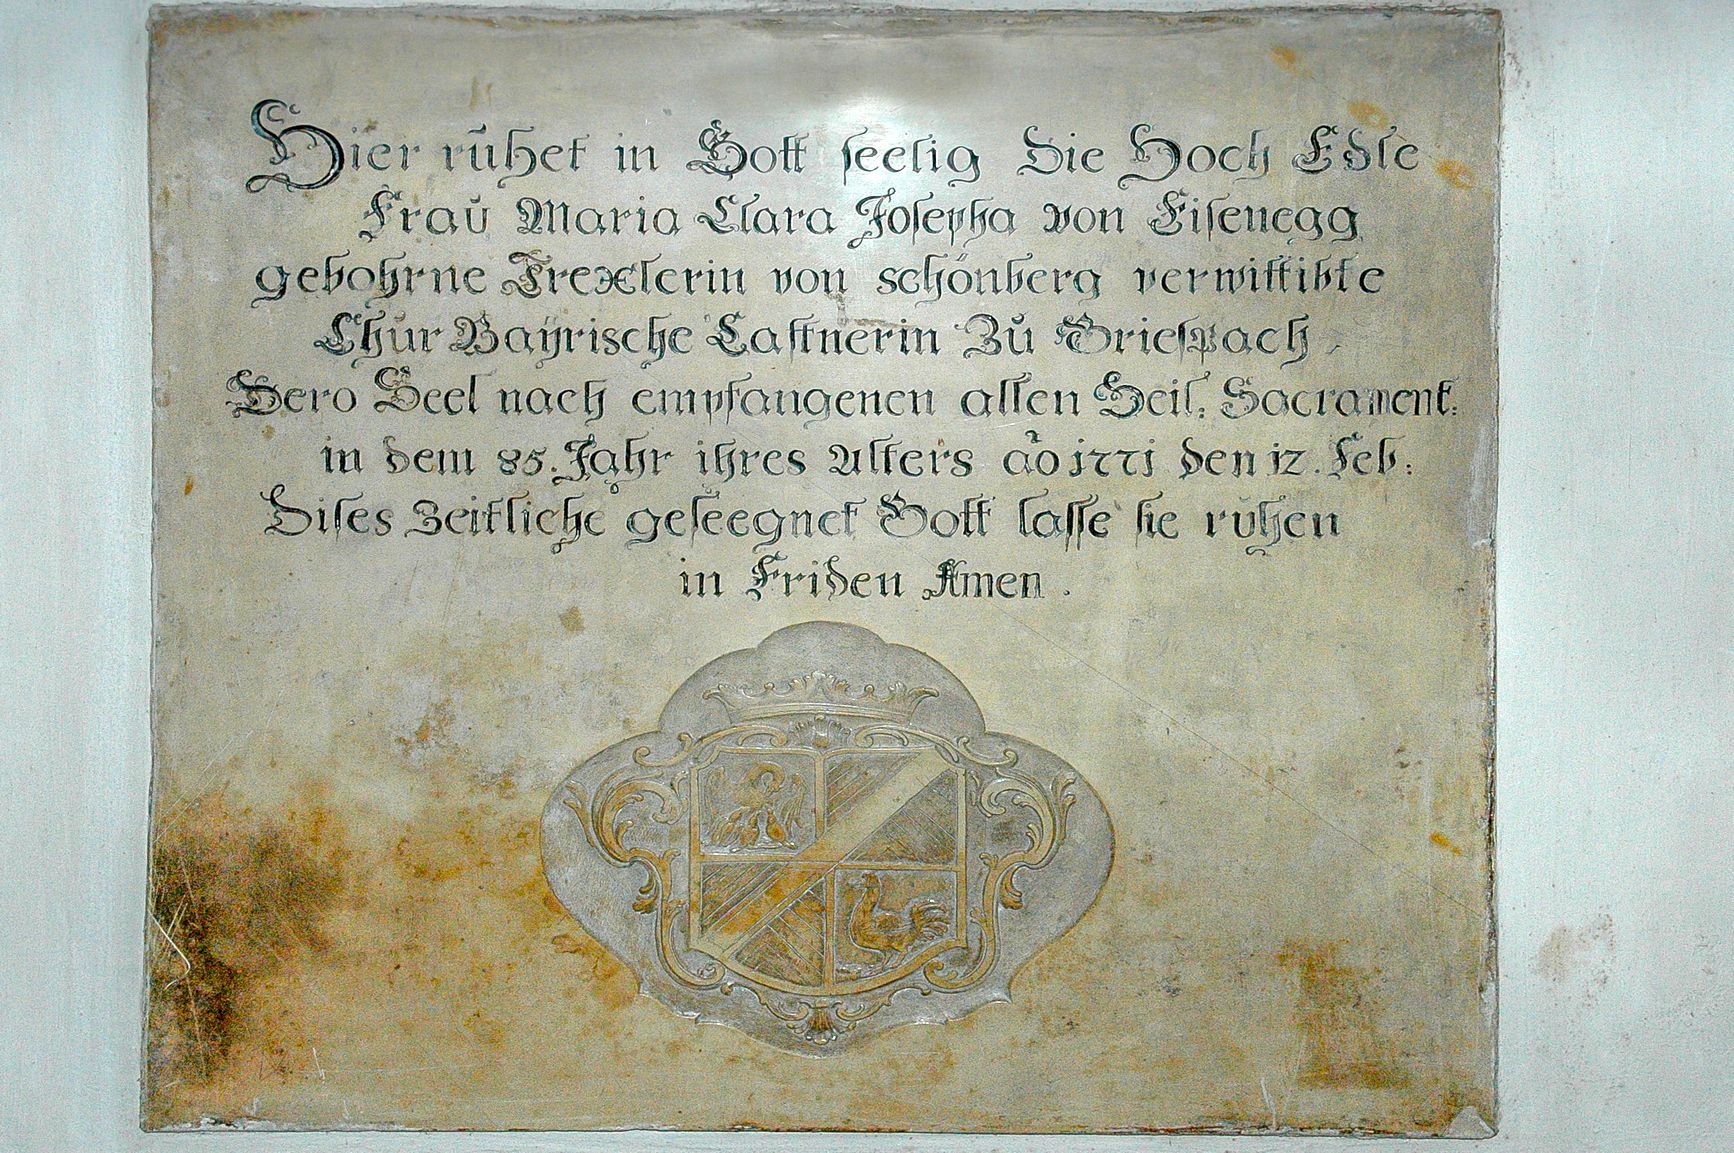 Hier rŭhet in Gott seelig Die Hoch Edle
Fraŭ Maria Clara Josepha von Eisenegg
gebohrne Trexlerin von schönberg verwittibte
Chŭr Bayrische Castnerin Zŭ Griespach
Dero Seel nach empfangenen allen Heil: Sacrament:
in dem 85. Jahr ihres Alters ão 1771 den 12. Feb:
Dises Zeitliche geseegnet Gott lasse sie rŭhen
in Friden Amen.